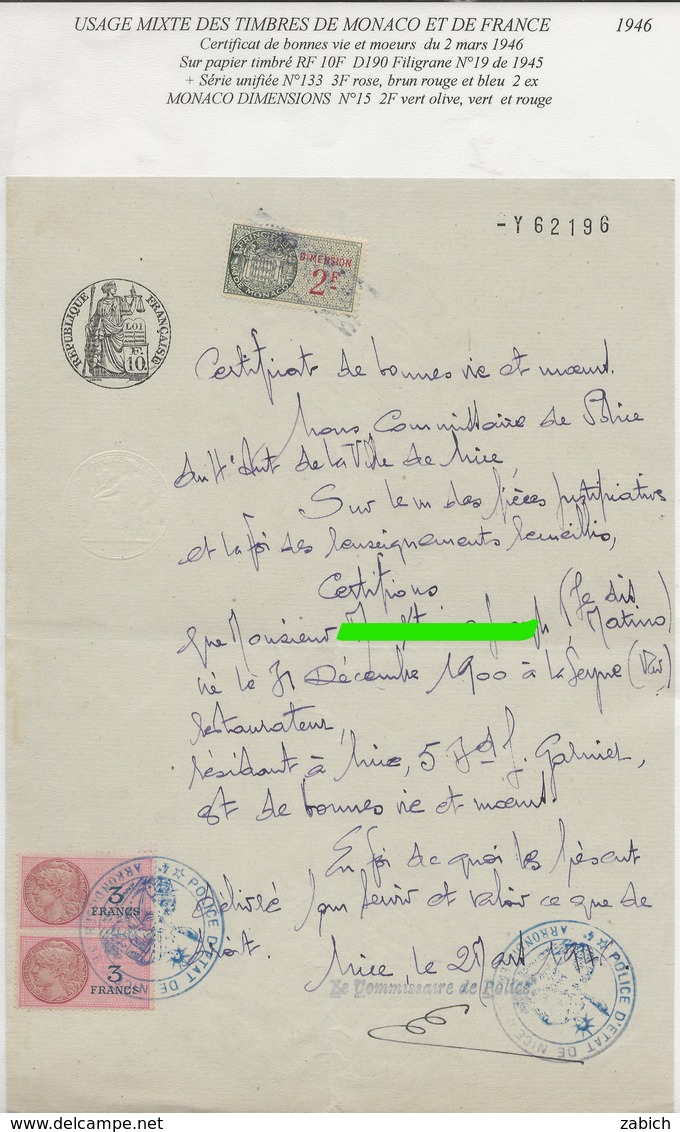 USAGE MIXTE DES TIMBRES DE MONACO ET DE FRANCE 1946
Certificat de bonnes vie et moeurs du 2 mars 1946
Sur papier timbré RF 10F D190 Filigrane N°19 de 1945
+ Série unifiée N°133 3F rose, brun rouge et bleu 2 ex
MONACO DIMENSIONS N°15 2F vert olive, vert et rouge
-Y 62196
DIMENSION
2F
RÉPUBLIQUE FRANÇAISE
LOI
F.
10
Certificat de bonnes vie et mœurs.
Nous Commissaire de Police
de la Ville de Nice
Sur le vu des pièces justificatives
et la foi des renseignements recueillis,
Certifions
que Monsieur (Je dit
Matino)
né le 31 Décembre 1900 à la Seyne (Var)
restaurateur,
résidant à Nice, 5 J. Garnier,
est de bonnes vie et mœurs.
En foi de quoi le présent
délivré pour servir et valoir ce que de
droit.
Nice, le 2 Mars
Le Commissaire de Police
3
FRANCS
3
FRANCS
POLICE D'ETAT DE NICE
POLICE D'ETAT DE NICE
zabich